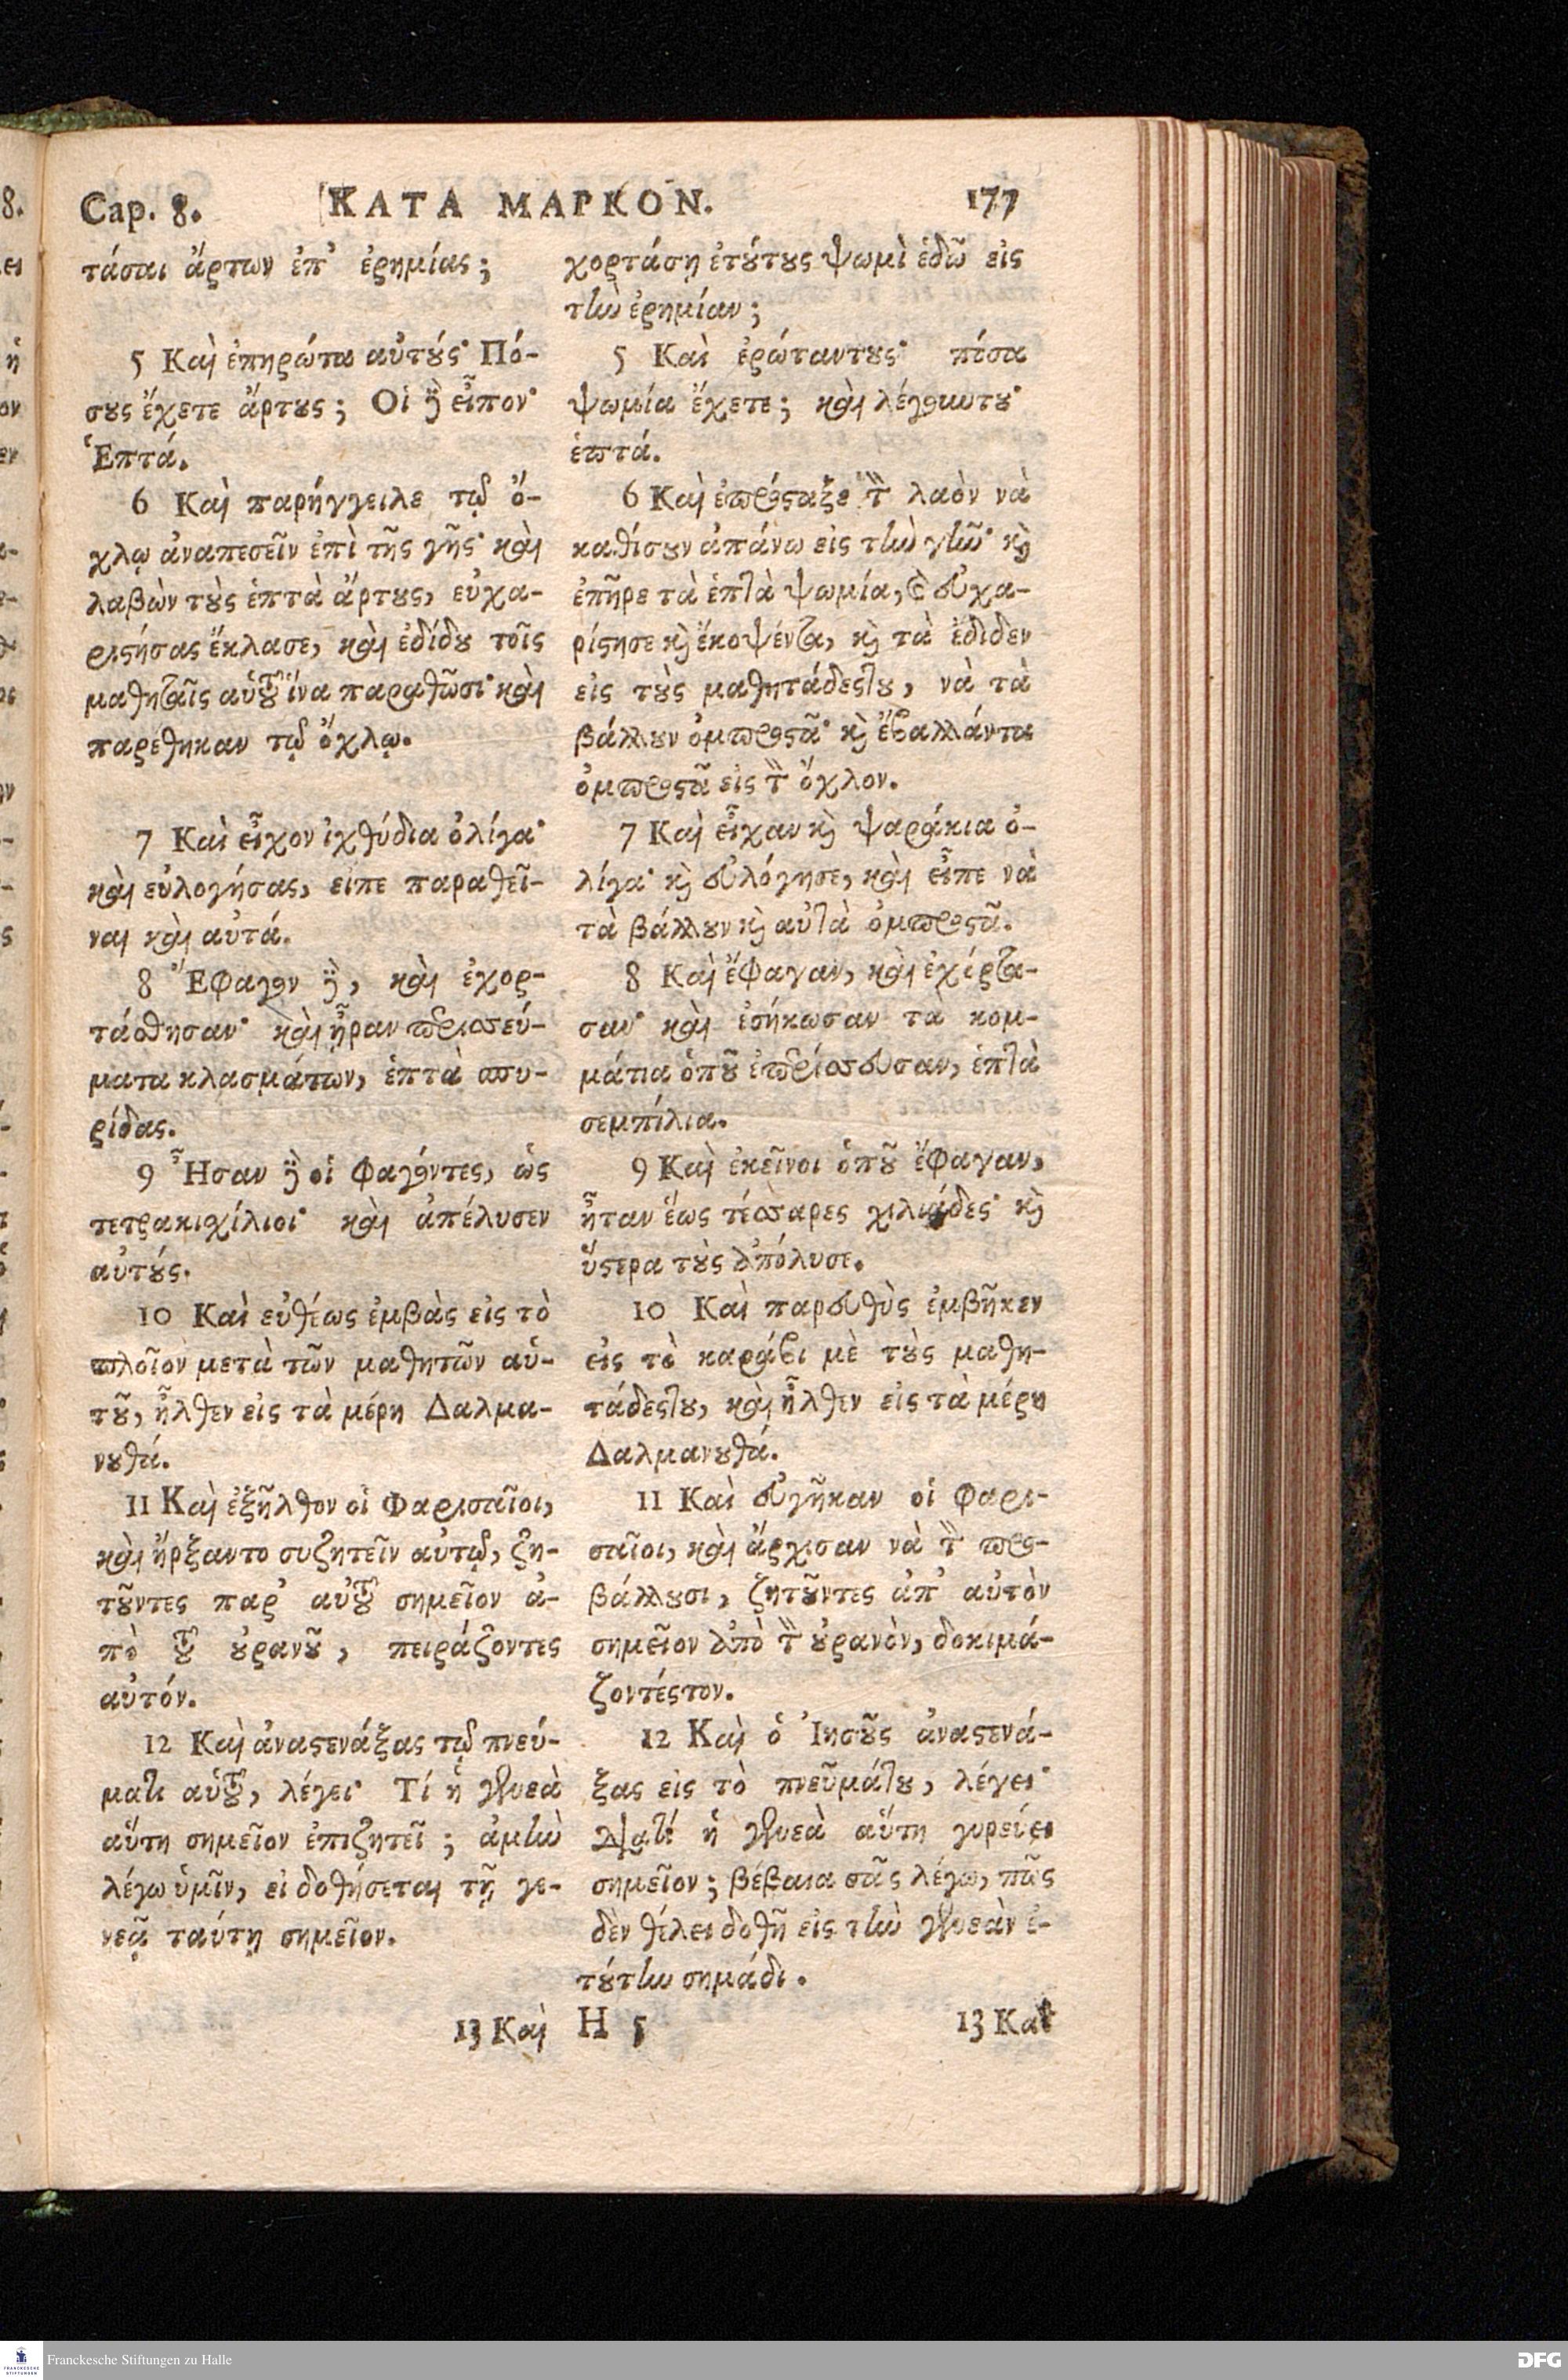 Cap. 8.
ΚΑΤΑ ΜΑΡΚΟΝ.
177
τάσαι ἄρτων ἐπ᾽ ἐρημίας;
5 Καὶ ἐπηρώτα αὐτȣ́ς· Πό-
σȣς ἔχετε ἄρτȣς; Οἱ δὲ εἶπον·
Ἑπτά.
6 Καὶ παρήγγειλε τῷ ὄ-
χλῳ ἀναπεσεῖν ἐπὶ τῆς γῆς· καὶ
λαβὼν τȣ̀ς ἑπτὰ ἄρτȣς, εὐχα-
ριϛήσας ἔκλασε, καὶ ἐδίδȣ τοῖς
μαθηταῖς αὑτȣ͂ ἵνα παραθῶσι· καὶ
παρέθηκαν τῷ ὄχλῳ.
7 Καὶ εἶχον ἰχθύδια ὀλίγα·
καὶ εὐλογήσας, εἶπε παραθεῖ-
ναι καὶ αὐτά.
8 Ἔφαγον δὲ, καὶ ἐχορ-
τάσθησαν· καὶ ἦραν περισσεύ-
ματα κλασμάτων, ἑπτὰ σπυ-
ρίδας.
9 Ἦσαν δὲ οἱ φαγόντες, ὡς
τετρακιχίλιοι· καὶ ἀπέλυσεν
αὐτȣ́ς.
10 Καὶ εὐθέως ἐμβὰς εἰς τὸ
πλοῖον μετὰ τῶν μαθητῶν αὑ-
τȣ͂, ἦλθεν εἰς τὰ μέρη Δαλμα-
νȣθά.
11 Καὶ ἐξῆλθον οἱ Φαρισαῖοι,
καὶ ἤρξαντο συζητεῖν αὐτῷ, ζη-
τȣ͂ντες παρ᾽ αὐτȣ͂ σημεῖον ἀ-
πὸ τȣ͂ ȣ̓ρανȣ͂, πειράζοντες
αὐτόν.
12 Καὶ ἀναϛενάξας τῷ πνεύ-
ματι αὑτȣ͂, λέγει· Τί ἡ γενεὰ
αὕτη σημεῖον ἐπιζητεῖ; ἀμὴν
λέγω ὑμῖν, εἰ δοθήσεται τῇ γε-
νεᾷ ταύτῃ σημεῖον.
13 Καὶ
χορτάσῃ ἐτȣ́τȣς ψωμὶ ἐδῶ εἰς
τὴν ἐρημίαν;
5 Καὶ ἐρώταντȣς· πόσα
ψωμία ἔχετε; καὶ λέγȣντȣ·
ἑπτά.
6 Καὶ ἐπρόϛαξε τὸν λαὸν νὰ
καθίσȣν ἀπάνω εἰς τὴν γῆν· καὶ
ἐπῆρε τὰ ἑπτὰ ψωμία, καὶ εὐχα-
ρίϛησε καὶ ἔκοψέντα, καὶ τὰ ἔδιδεν
εἰς τȣ̀ς μαθητάδεςτȣ, νὰ τὰ
βάλλȣν ὀμπροϛᾶ· καὶ ἔβαλλάντα
ὀμπροϛᾶ εἰς τὸν ὄχλον.
7 Καὶ εἶχαν καὶ ψαράκια ὀ-
λίγα· καὶ εὐλόγησε, καὶ εἶπε νὰ
τὰ βάλλȣν καὶ αὐτὰ ὀμπροϛᾶ.
8 Καὶ ἔφαγαν, καὶ ἐχόρτα-
σαν· καὶ ἐσήκωσαν τὰ κομ-
μάτια ὁπȣ͂ ἐπερίσσευσαν, ἑπτὰ
σεμπίλια.
9 Καὶ ἐκεῖνοι ὁπȣ͂ ἔφαγαν,
ἦταν ἕως τέσσαρες χιλιάδες· καὶ
ὕϛερα τȣ̀ς ἀπόλυσε.
10 Καὶ παρευθὺς ἐμβῆκεν
εἰς τὸ καράβι μὲ τȣ̀ς μαθη-
τάδεςτȣ, καὶ ἦλθεν εἰς τὰ μέρη
Δαλμανȣθά.
11 Καὶ εὐγῆκαν οἱ Φαρι-
σαῖοι, καὶ ἄρχισαν νὰ τὸν προ-
βάλλȣσι, ζητȣ͂ντες ἀπ᾽ αὐτὸν
σημεῖον ἀπὸ τὸν ȣ̓ρανὸν, δοκιμά-
ζοντέςτον.
12 Καὶ ὁ Ἰησȣ͂ς ἀναϛενά-
ξας εἰς τὸ πνεῦμάτȣ, λέγει·
Διατί ἡ γενεὰ αὕτη γυρεύει
σημεῖον; βέβαια σᾶς λέγω, πῶς
δὲν θέλει δοθῆ εἰς τὴν γενεὰν ἐ-
τȣ́την σημάδι.
H 5
13 Καὶ
Franckesche Stiftungen zu Halle
DFG